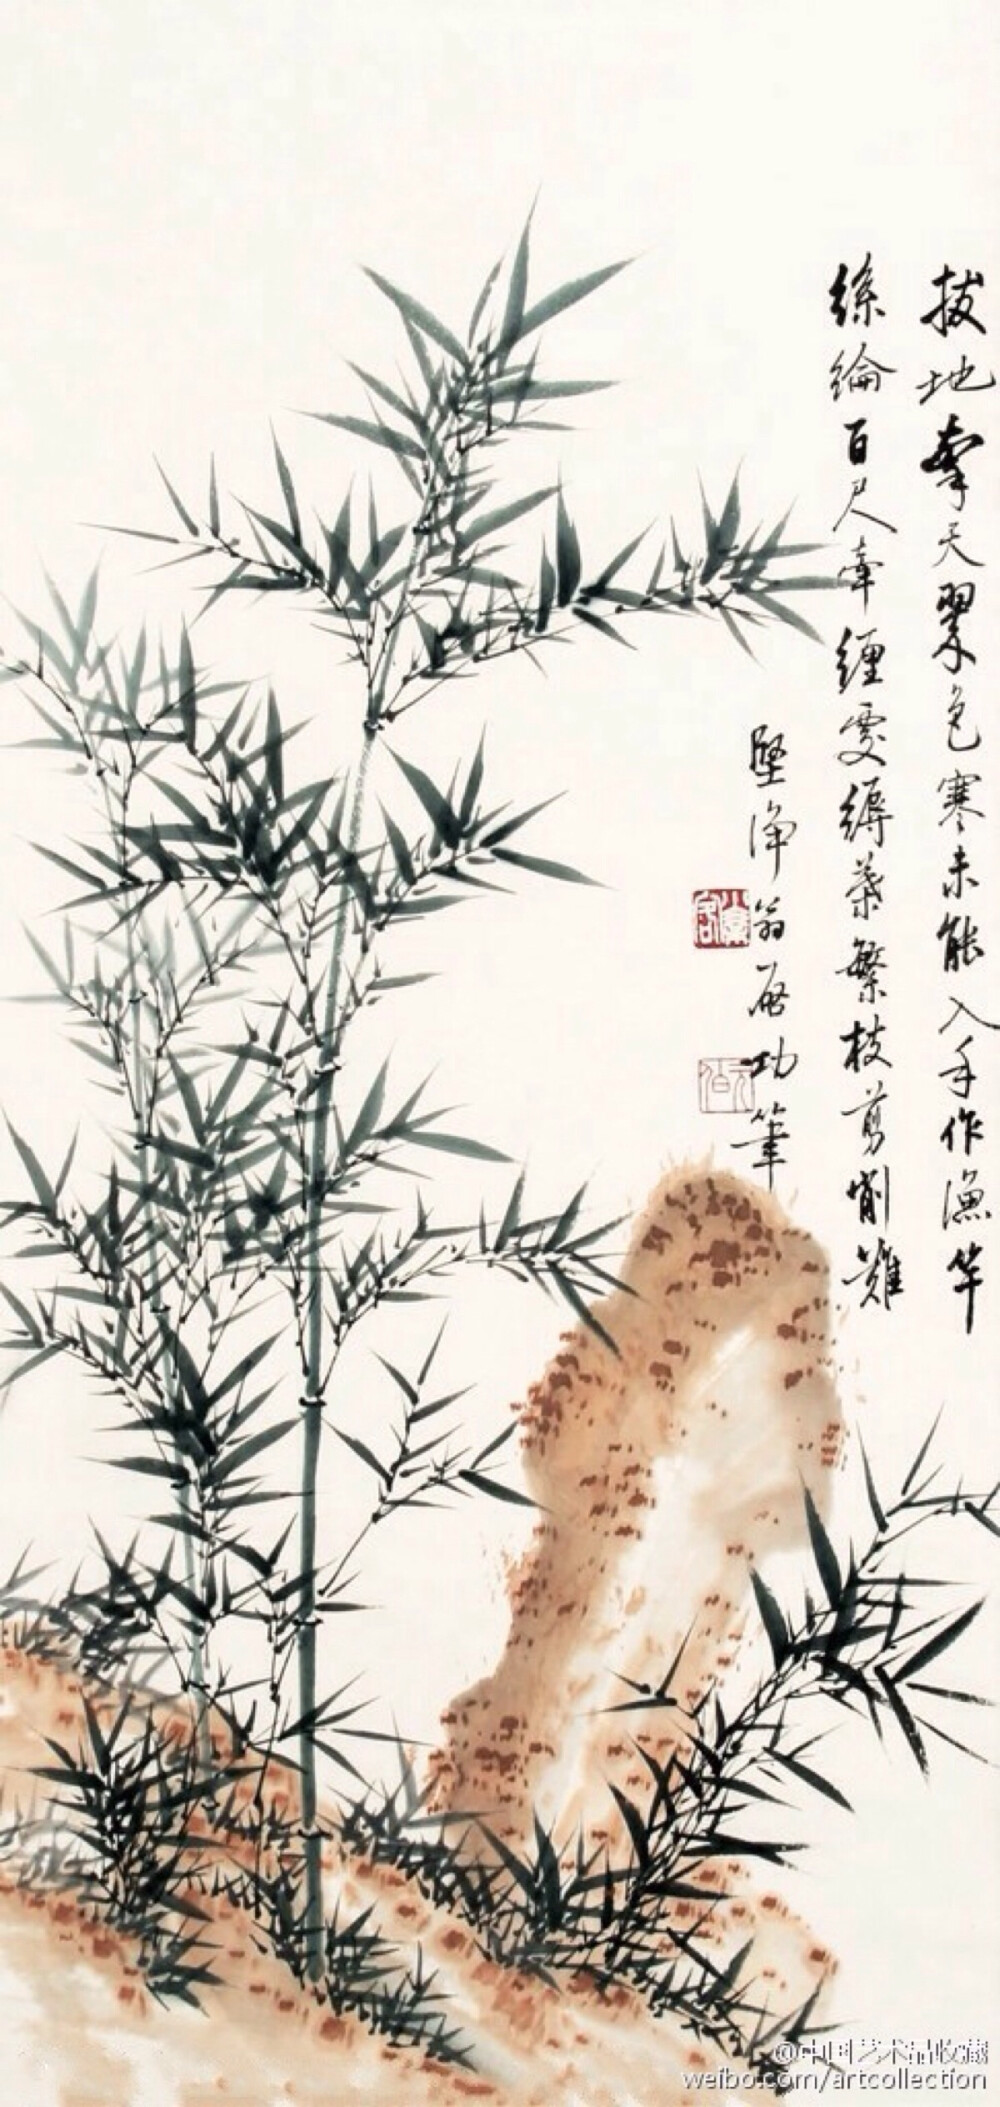 拔地牽天翠色寒未能入手作漁竿
絲綸百尺牽纏處縟葉繁枝剪削難
堅淨翁啟功筆
啟功
元白
@中国艺术品收藏
weibo.com/artcollection